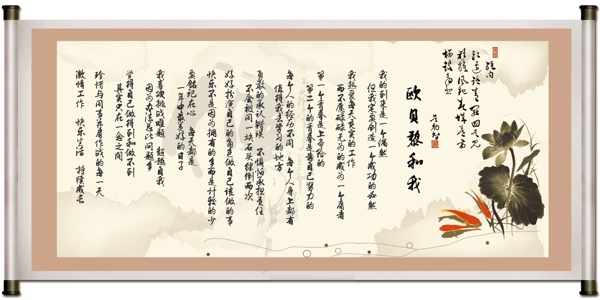 欧贝黎和我
我的到来是一个偶然
但我定要创造一个成功的必然
我执意每天充实的工作
而不愿碌碌无为的成为一个庸者
第一个青春是上帝给的
第二个的青春是靠自己努力的
每个人的经历不同 每个人身上都有
值得我去学习的地方
勇敢的承认错误 不惧怕承担责任
不会被同一块石头绊倒两次
好好扮演自己的角色做自己该做的事
快乐不是因为拥有的多而是计较的少
铭记在心 每天都是
一年中最美好的日子
我喜欢挑战难题 超越自我
因为办法总比问题多
觉得自己做得到和做不到
其实只在一念之间
珍惜与同事并肩作战的每一天
激情工作 快乐生活 持续成长